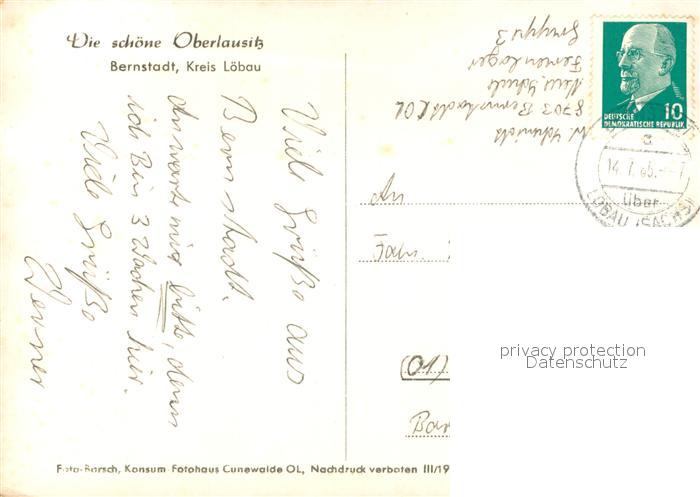 Die schöne Oberlausitz
Bernstadt, Kreis Löbau
Viele Grüße aus
Bernstadt.
Antworte mir bitte, denn
ich bin 3 Wochen hier.
Viele Grüße
Werner
W. Schmidt
8703 Bernstadt OL
Neue Schule
Ferienlager
Gruppe 3
DEUTSCHE
DEMOKRATISCHE REPUBLIK
10
a
14.7.65.
über
LÖBAU (SACHS)
An
Fam
(01)
Bar
privacy protection
Datenschutz
Foto-Borsch, Konsum-Fotohaus Cunewalde OL, Nachdruck verboten III/19